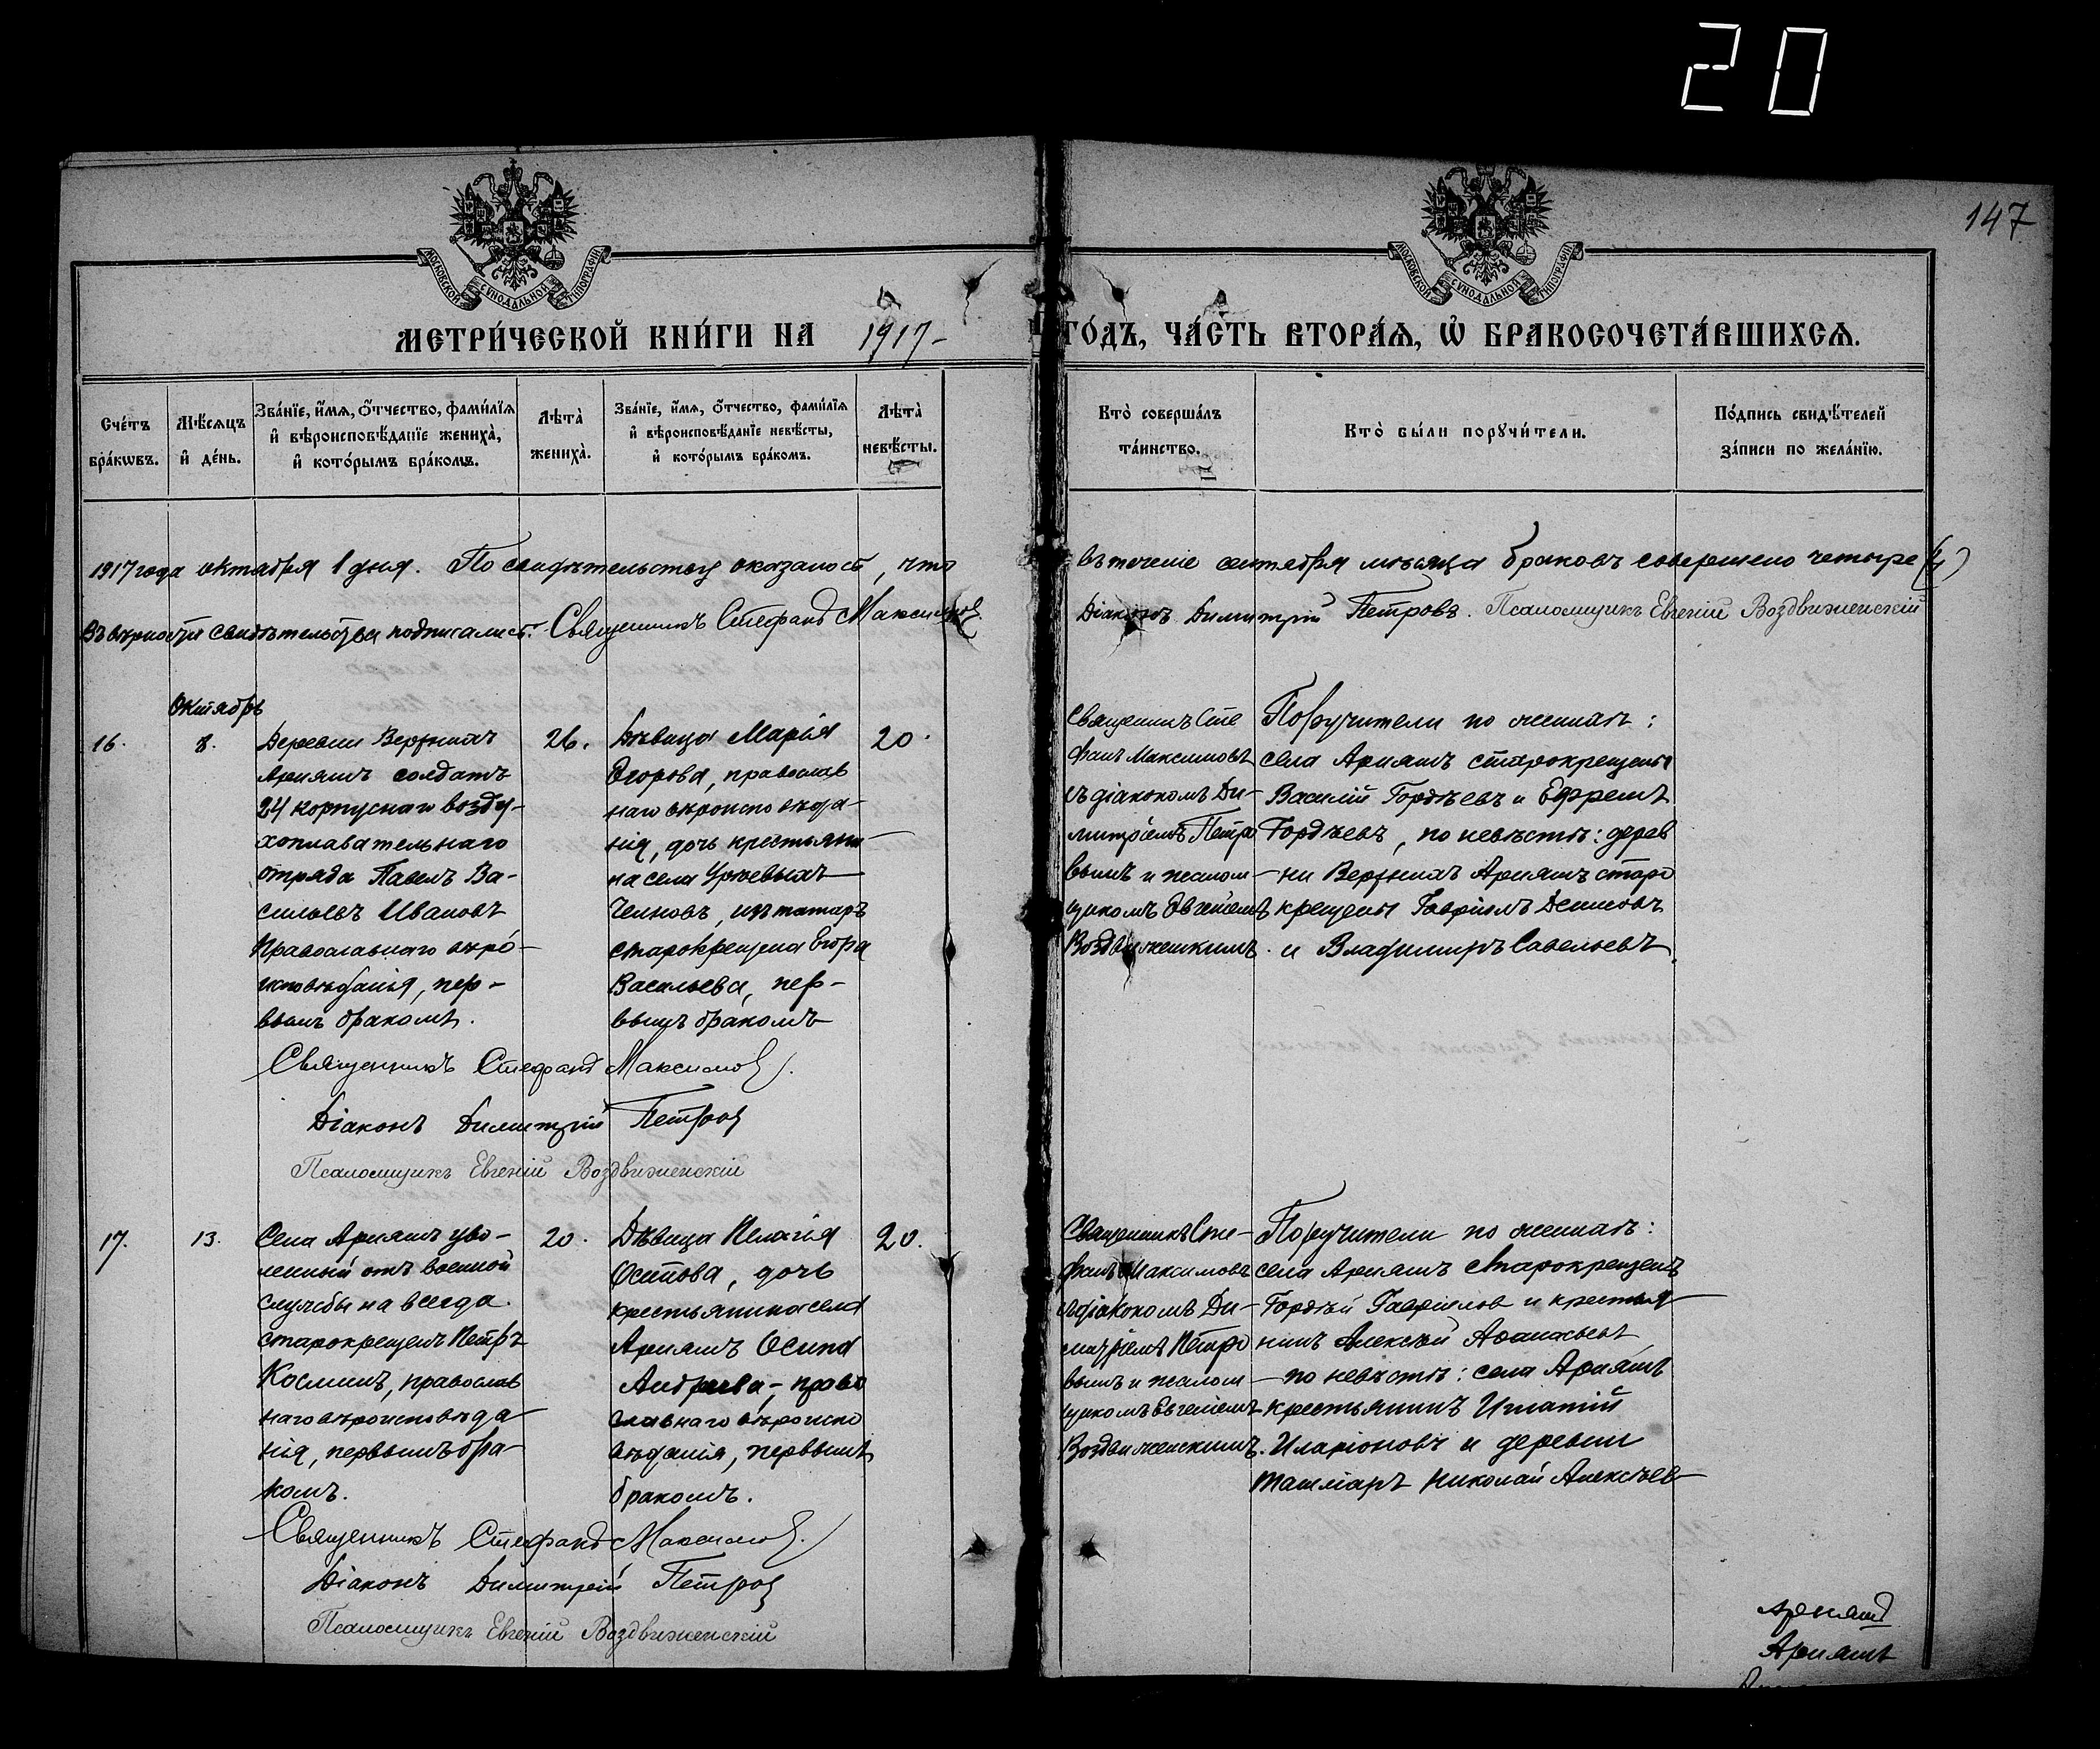 20
147
МОСКОВСКОЙ СѴНОДАЛЬНОЙ ТИПОГРАФІИ
МОСКОВСКОЙ СѴНОДАЛЬНОЙ ТИПОГРАФІИ
МЕТРИ́ЧЕСКОЙ КНИ́ГИ НА 1917- ГО́ДЪ, ЧА́СТЬ ВТОРА́Ѧ, Ѡ҆ БРАКОСОЧЕТА́ВШИХСѦ.
Сче́тъ бра́кѡвъ.
Мѣ́сѧцъ и҆ де́нь.
Зва́нїе, и҆́мѧ, ѻ҆́тчество, фами́лїѧ и҆ вѣроисповѣ́данїе жениха̀, и҆ кото́рымъ бра́комъ.
Лѣта̀ жениха̀.
Зва́нїе, и҆́мѧ, ѻ҆́тчество, фами́лїѧ и҆ вѣроисповѣ́данїе невѣ́сты, и҆ кото́рымъ бра́комъ.
Лѣта̀ невѣ́сты.
Кто̀ соверша́лъ та́инство.
Кто̀ бы́ли порꙋчи́тели.
По́дпись свидѣ́телей за́писи по жела́нїю.
1917 года октября 1 дня. По свидѣтельству оказалось, что въ теченіе сентября мѣсяца браковъ совершено четыре (4)
Въ вѣрности свидѣтельства подписались: Священникъ Стефанъ Максимовъ Діаконъ Димитрій Петровъ. Псаломщикъ Евгеній Воздвиженскій
Октябрь
16.
8.
Деревни Верхнихъ
Арняшъ солдатъ
24 корпуснаго возду-
хоплавательнаго
отряда Павелъ Ва-
сильевъ Ивановъ
Православнаго вѣро-
исповѣданія, пер-
вымъ бракомъ.
26.
Дѣвица Марія
Егорова, православ
наго вѣроисповѣда-
нія, дочь крестьяни-
на села Урѣевыхъ
Челновъ, изъ татаръ
старокрещена Егора
Васильева, пер-
вымъ бракомъ
20.
Священникъ Сте
фанъ Максимовъ
съ діакономъ Ди-
митріемъ Петро
вымъ и псалом-
щикомъ Евгеніемъ
Воздвиженскимъ.
Поручители по женихѣ:
села Арняшъ старокрещены
Василій Гордѣевъ и Ефремъ
Гордѣевъ, по невѣстѣ: дерев
ни Верхнихъ Арняшъ старо
крещены Гавріилъ Денисовъ
и Владимиръ Савельевъ.
Священникъ Стефанъ Максимовъ.
Діаконъ Димитрій Петровъ
Псаломщикъ Евгеній Воздвиженскій
17.
13.
Села Арняшъ уво-
ленный отъ военной
службы на всегда
старокрещенъ Петръ
Косминъ, православ
наго вѣроисповѣда-
нія, первымъ бра-
комъ.
20.
Дѣвица Пелагія
Осипова, дочь
крестьянина села
Арняшъ Осипа
Андреева - право
славнаго вѣроиспо
вѣданія, первымъ
бракомъ.
20.
Священникъ Сте-
фанъ Максимовъ
съ діакономъ Ди-
митріемъ Петро
вымъ и псалом-
щикомъ Евгеніемъ
Воздвиженскимъ.
Поручители по женихѣ:
села Арняшъ старокрещенъ
Гордѣй Гавриловъ и крестья-
нинъ Алексѣй Афанасьевъ
по невѣстѣ: села Арняшъ
крестьянинъ Игнатій
Иларіоновъ и деревни
Ташліаръ Николай Алексѣевъ
Священникъ Стефанъ Максимовъ.
Діаконъ Димитрій Петровъ
Псаломщикъ Евгеній Воздвиженскій
Арняшъ
Арняшъ